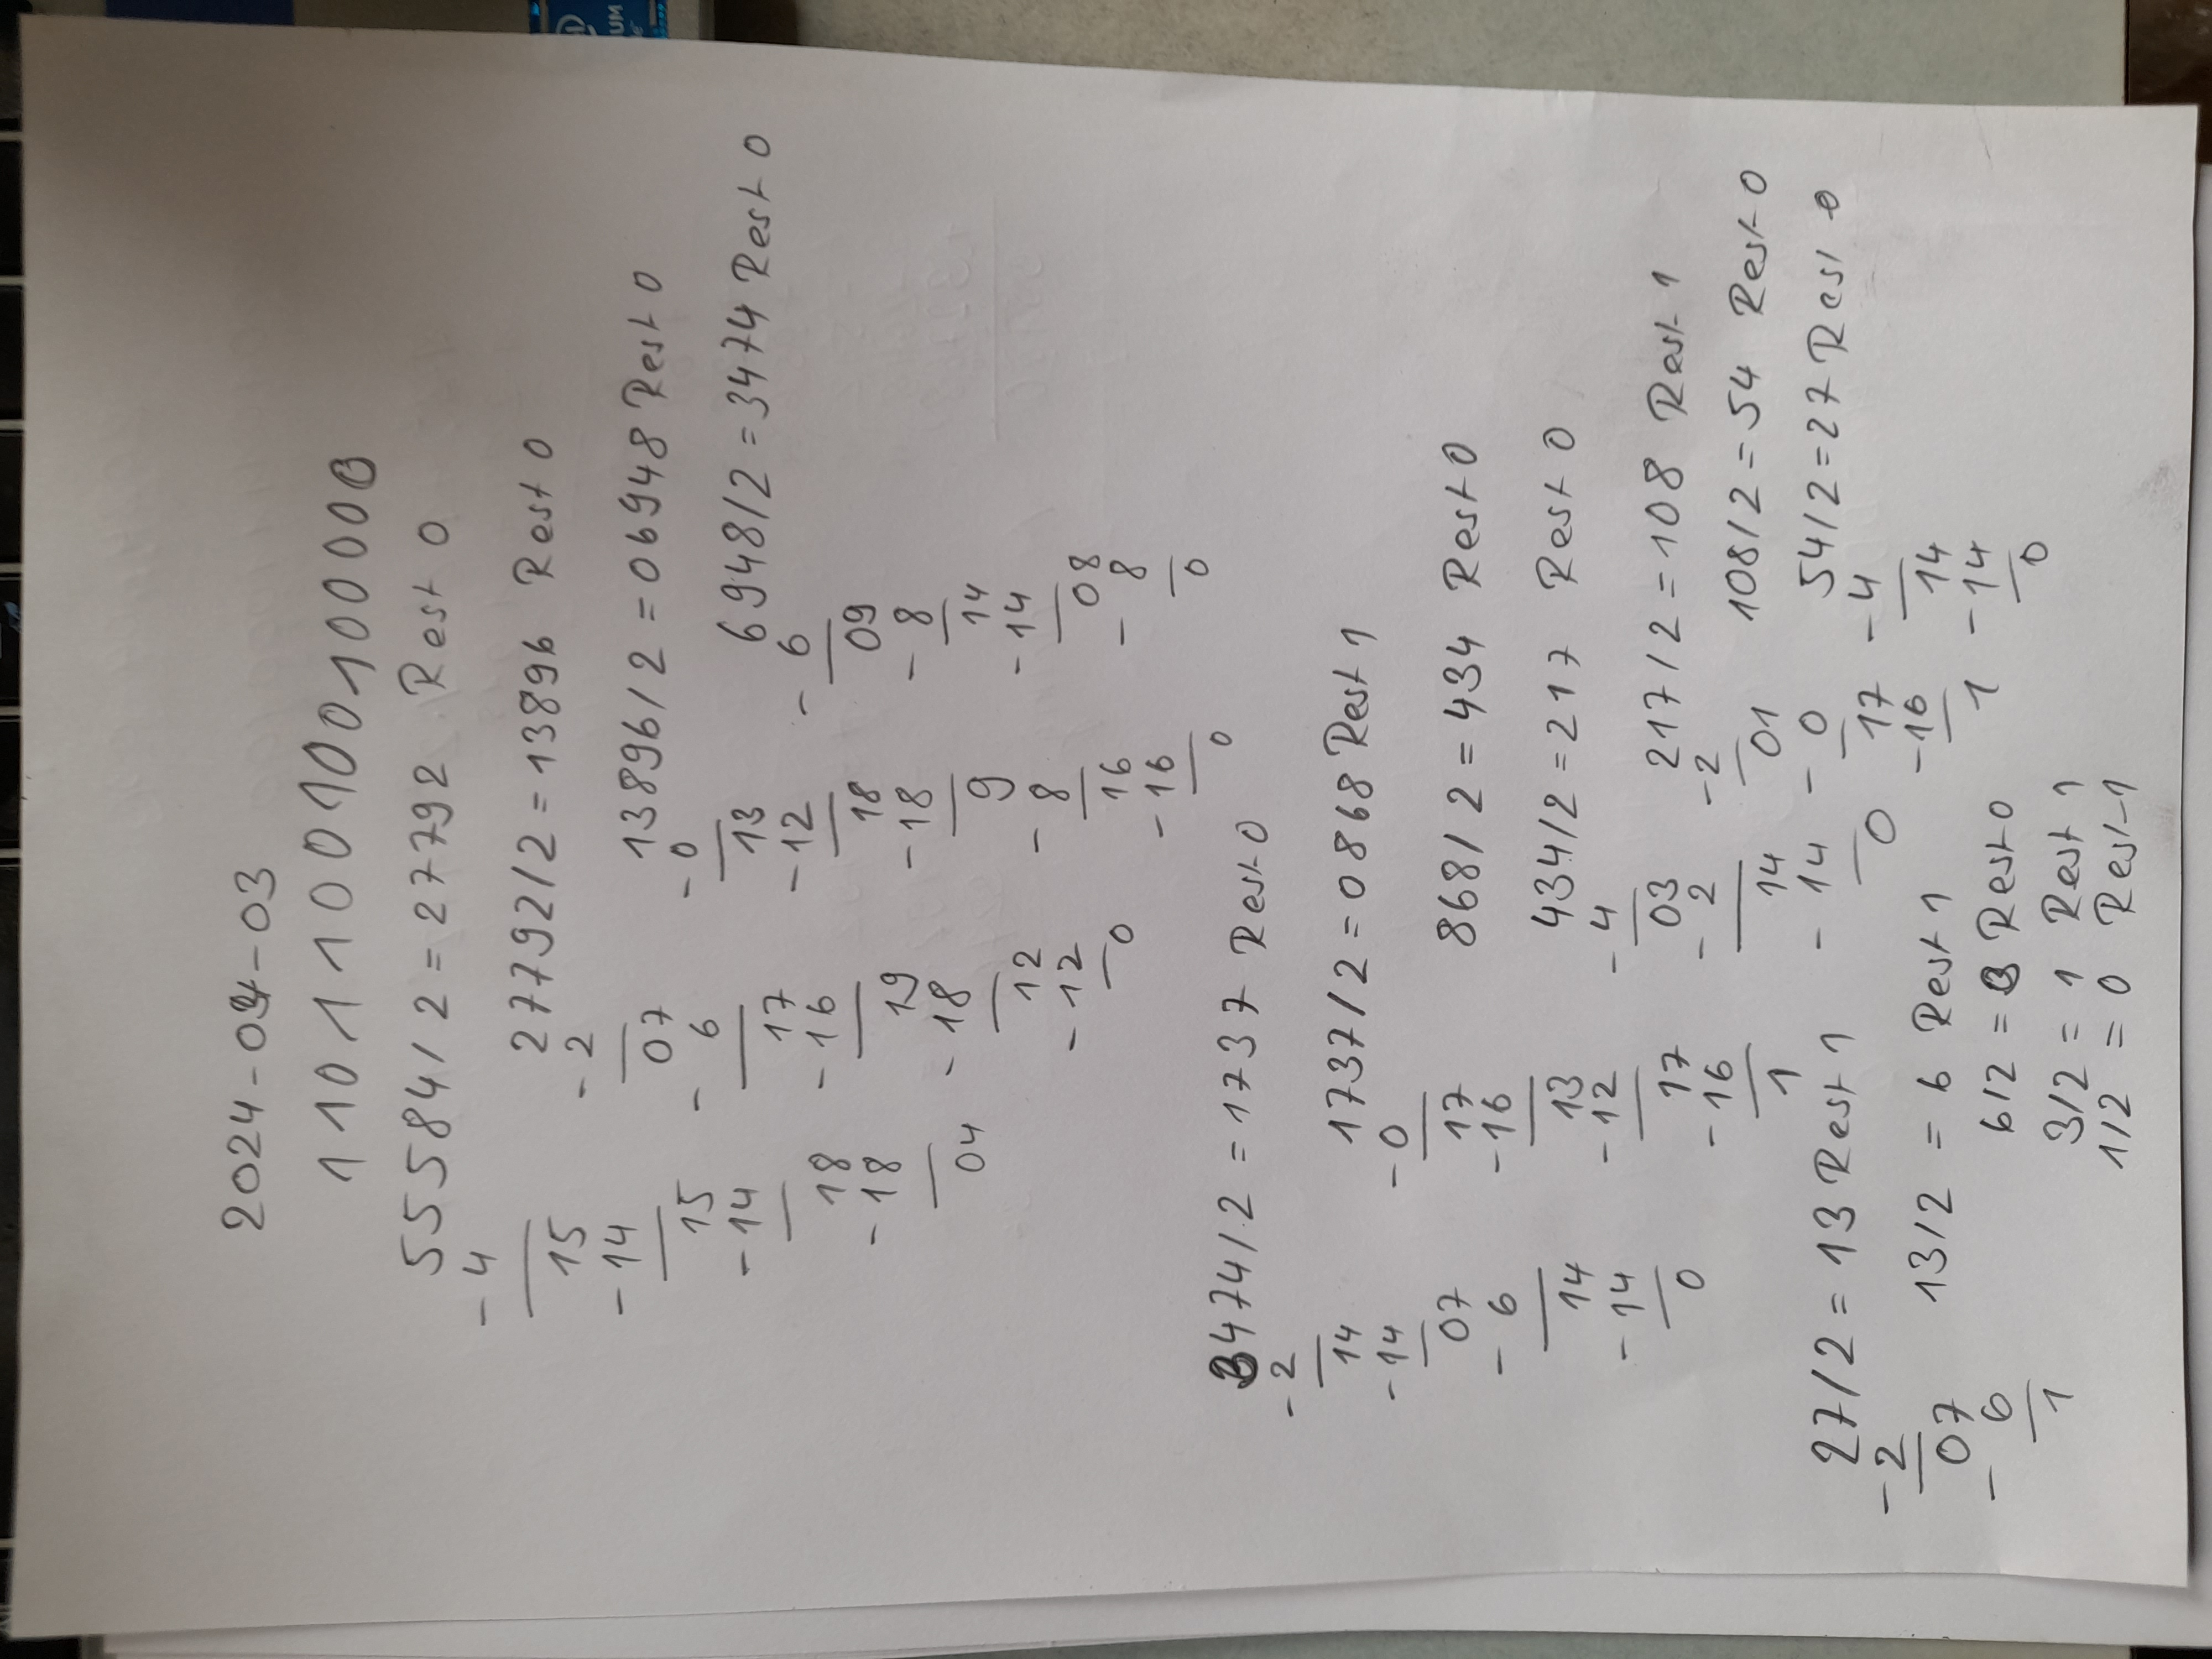 2024-04-03
1101100100100000
55584/2=27792 Rest 0
-4
15
-14
15
-14
18
-18
04
27792/2=13896 Rest 0
-2
07
- 6
17
-16
19
-18
12
-12
0
13896/2=06948 Rest 0
-0
13
-12
18
-18
9
- 8
16
-16
0
6948/2=3474 Rest 0
- 6
09
- 8
14
-14
08
- 8
0
3474/2=1737 Rest 0
-2
14
-14
07
- 6
14
-14
0
1737/2=0868 Rest 1
-0
17
-16
13
-12
17
-16
1
868/2=434 Rest 0
434/2=217 Rest 0
-4
03
- 2
14
- 14
0
217/2=108 Rest 1
-2
01
- 0
17
-16
1
108/2=54 Rest 0
54/2=27 Rest 0
-4
14
-14
0
27/2=13 Rest 1
-2
07
- 6
1
13/2 = 6 Rest 1
6/2 = 3 Rest 0
3/2 = 1 Rest 1
1/2 = 0 Rest 1
UM